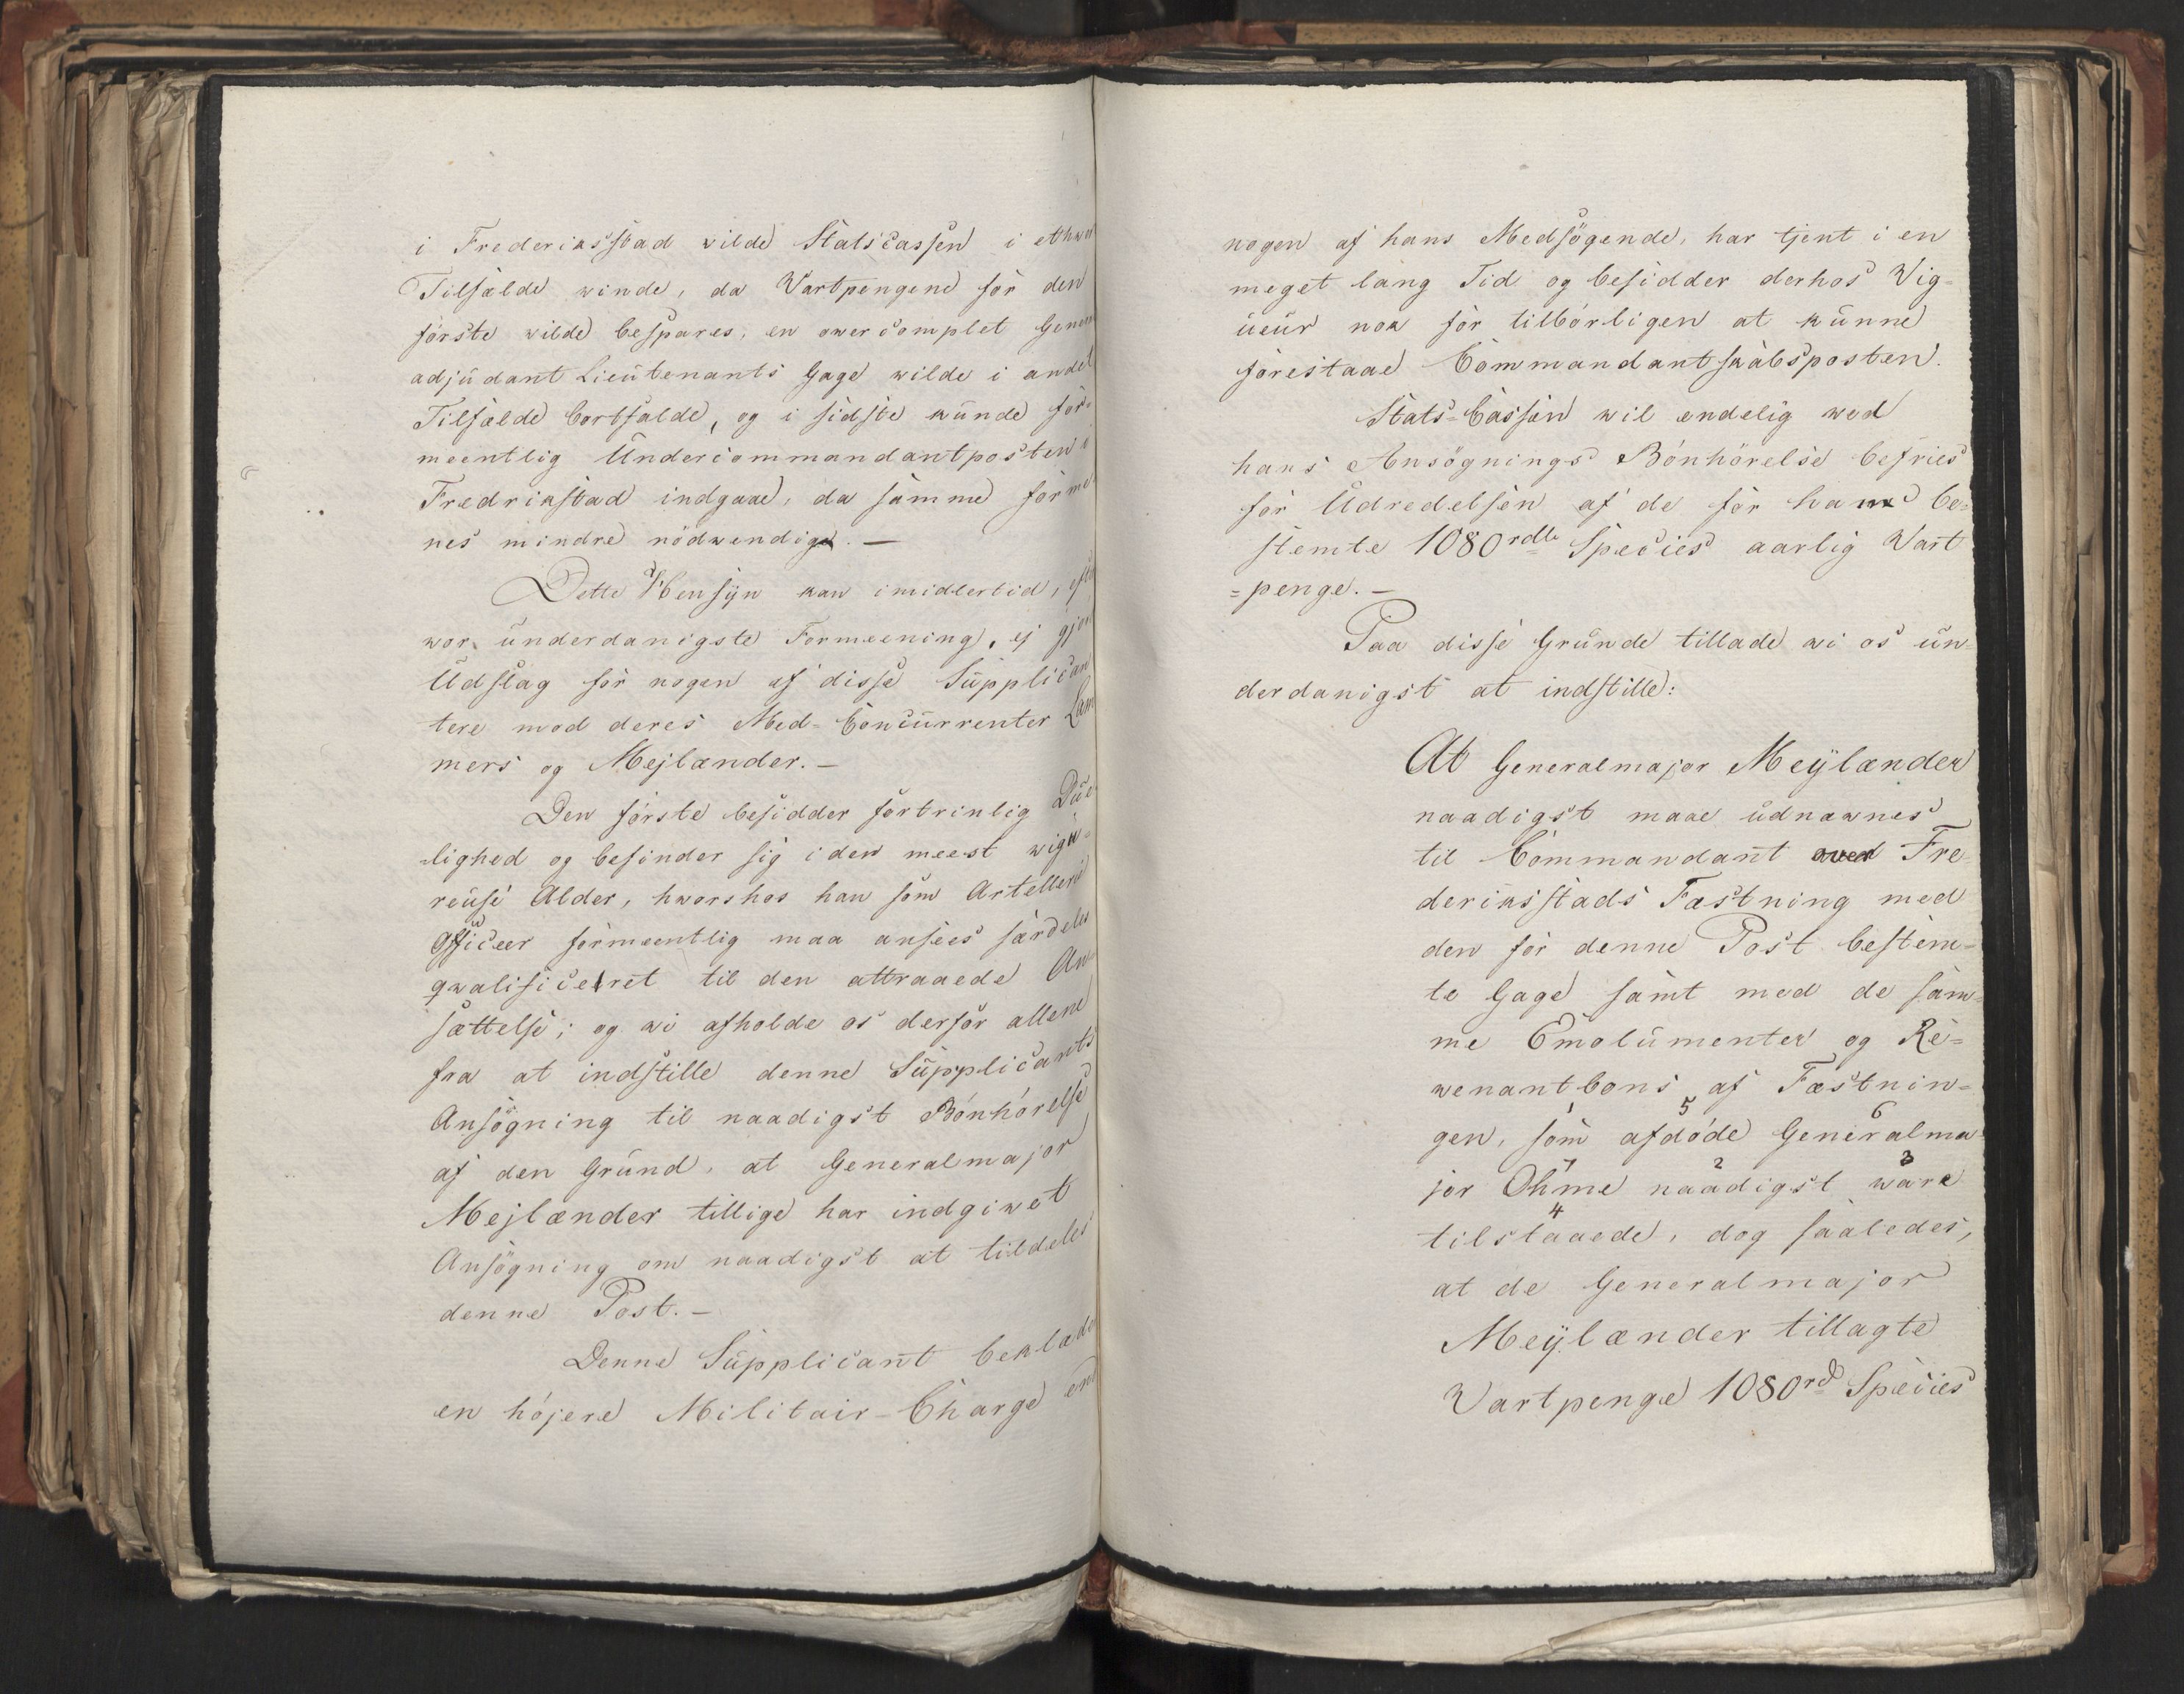 i Frederiksstad vilde Statscassen i ethwert
Tilfælde winde, da Vartpengene for den
første wilde bespares, en overcomplet General
adjudant Lieutenants Gage wilde i andet
Tilfælde bortfalde, og i sidste kunde for-
meentlig Undercommandantposten i
Fredrikstad indgaae, da samme forme-
nes mindre nødwendig. —
Dette Hensyn kan imidlertid, efter
wor underdanigste Formeening, ej gjøre
Udslag for nogen af disse Supplican
tere mod deres Med-Concurrenter Lam
mers og Mejlænder. —
Den første besidder fortrinlig Due-
-lighed og befinder sig i den meest wigu-
reuse Alder, hworhos han som Artellerie
Officeer formeentlig maa ansees særdeles
qwalificeret til den attraaede An-
sættelse; og wi afholde os derfor allene
fra at indstille denne Supplicants
Ansøgning til naadigst Bønhørelse
af den Grund, at Generalmajor
Mejlænder tillige har indgiwet
Ansøgning om naadigst at tildeles
denne Post. —
Denne Supplicant beklæder
en højere Militair-Charge end
nogen af hans Medsøgende, har tjent i en
meget lang Tid og besidder derhos Vig-
ueur nok for tilbørligen at kunne
forestaae Commandantskabsposten.
Stats-Cassen wil endelig wed
hans Ansøgnings Bønhørelse befries
for Udredelsen af de for ham be-
stemte 1080 rdlr Species aarlig Vart
=penge. —
Paa disse Grunde tillade wi os un-
derdanigst at indstille:
At Generalmajor Meÿlænder
naadigst maae udnæwnes
til Commandant over Fre-
deriksstads Fæstning med
den for denne Post bestem-
te Gage samt med de sam-
me Emolumenter og Re-
wenant bons af Fæstnin-
gen, som afdøde Generalma
1 5 6
jor Ohme naadigst ware
7 2 3
tilstaaede, dog saaledes,
4
at de Generalmajor
Meÿlænder tillagte
Vartpenge 1080 rd Species